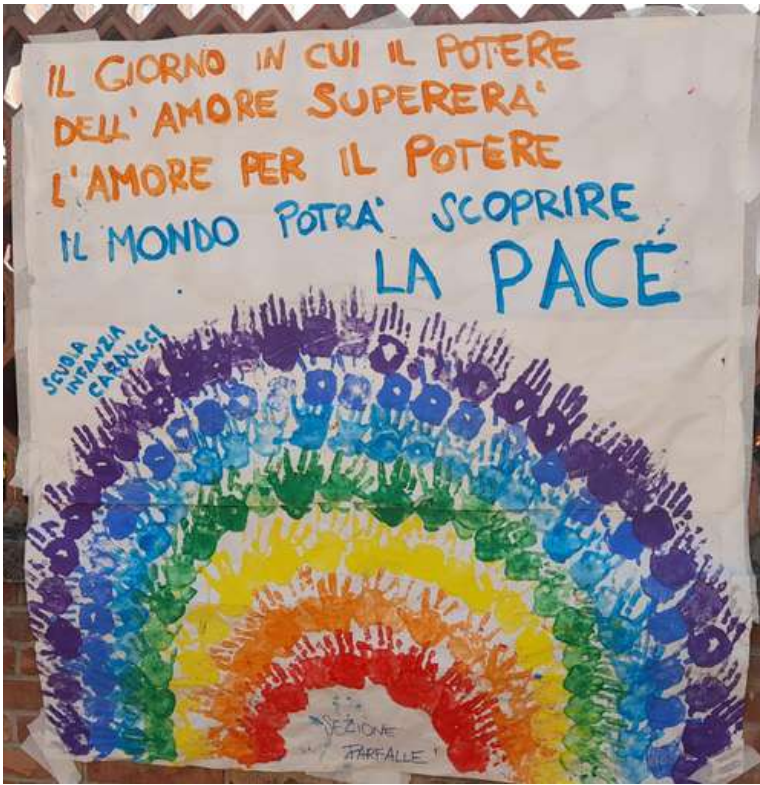 IL GIORNO IN CUI IL POTERE
DELL'AMORE SUPERERA'
L'AMORE PER IL POTERE
IL MONDO POTRA' SCOPRIRE
LA PACE
SCUOLA
INFANZIA
CARDUCCI
SEZIONE
FARFALLE